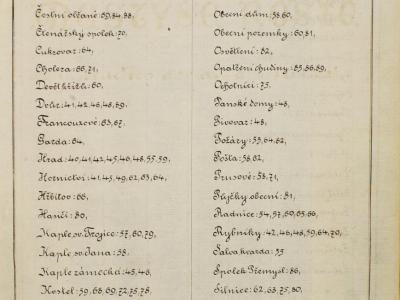 Čestní občané: 69,84,88,
Čtenářský spolek: 70,
Cukrovar: 64,
Cholera: 66,71,
Devět křížů: 60,
Dvůr: 41,42,46,48,69,
Francouzové: 63,67,
Garda: 64,
Hrad: 40,41,42,45,46,48,55,59,
Hornictví: 41,45,49,62,63,64,
Hřbitov: 66,
Hasiči: 80,
Kaple sv. Trojice: 57,60,79,
Kaple sv. Jana: 58,
Kaple zámecká: 45,46,
Kostel: 59,68,69,72,75,78,
Obecní dům: 58,60,
Obecní pozemky: 60,81,
Osvětlení: 82,
Opatření chudiny: 85,86,89,
Ochotníci: 75,
Panské domy: 48,
Pivovar: 48,
Požáry: 55,64,82,
Pošta: 58,82,
Prusové: 58,71,
Půjčky obecní: 81,
Radnice: 54,57,60,65,66,
Rybníky: 42,46,48,59,64,70,
Salva kvarda: 55
Spolek Přemysl: 86,
Silnice: 62,63,75,80,